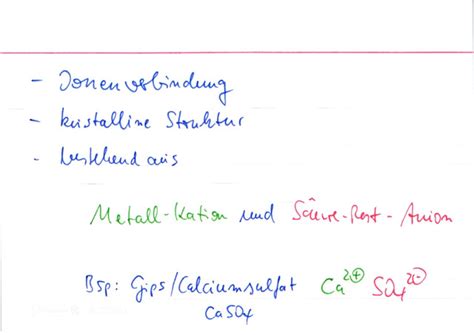 - Ionenverbindung
- kristalline Struktur
- bestehend aus
Metall-Kation und Säure-Rest-Anion
Bsp: Gips/Calciumsulfat Ca²⁺ SO₄²⁻
CaSO₄